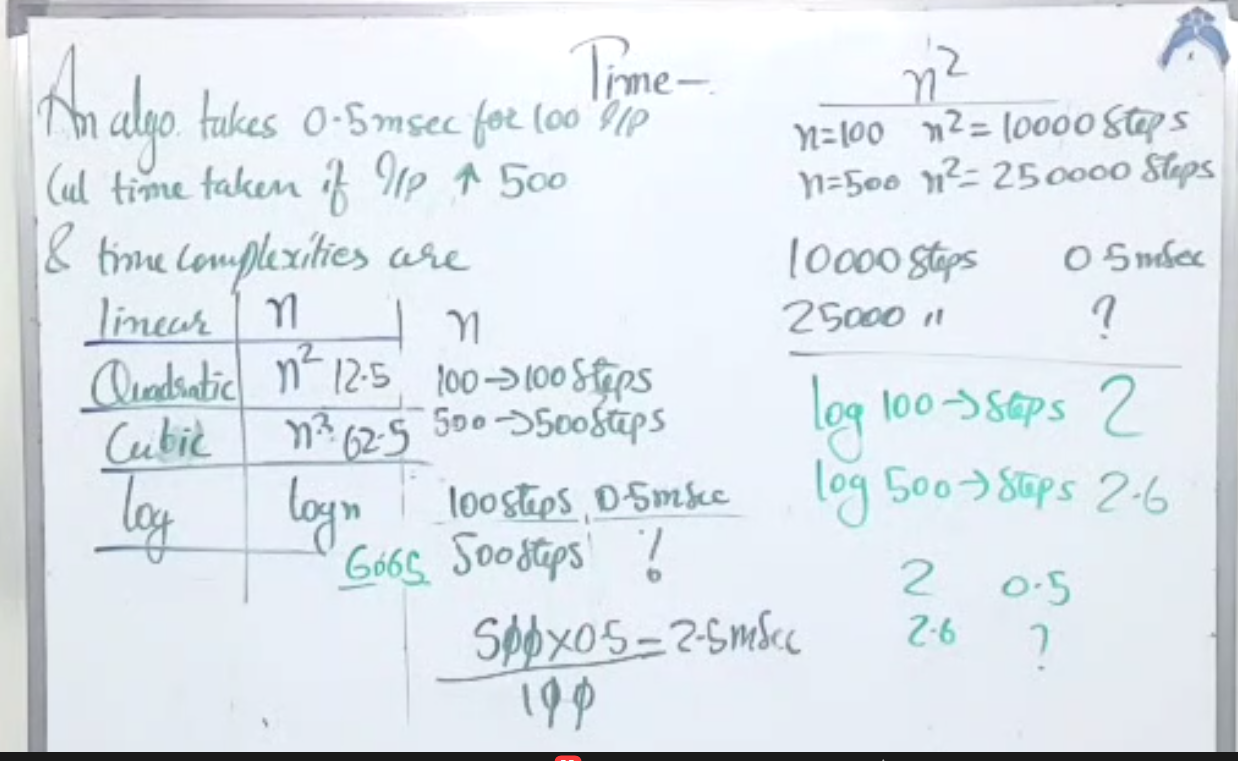 Time-
An algo. takes 0.5msec for 100 I/P
Cal time taken if I/P ↑ 500
& time complexities are
linear n
Quadratic n² 12.5
Cubic n³ 62.5
log logn
n
100→100 Steps
500→500 Steps
100 steps 0.5msec
500 steps ?
500×0.5=2.5msec
100
n²
n=100 n²=10000 Steps
n=500 n²=250000 Steps
10000 Steps 0.5mSec
25000 " ?
log 100→Steps 2
log 500→Steps 2.6
2 0.5
2.6 ?